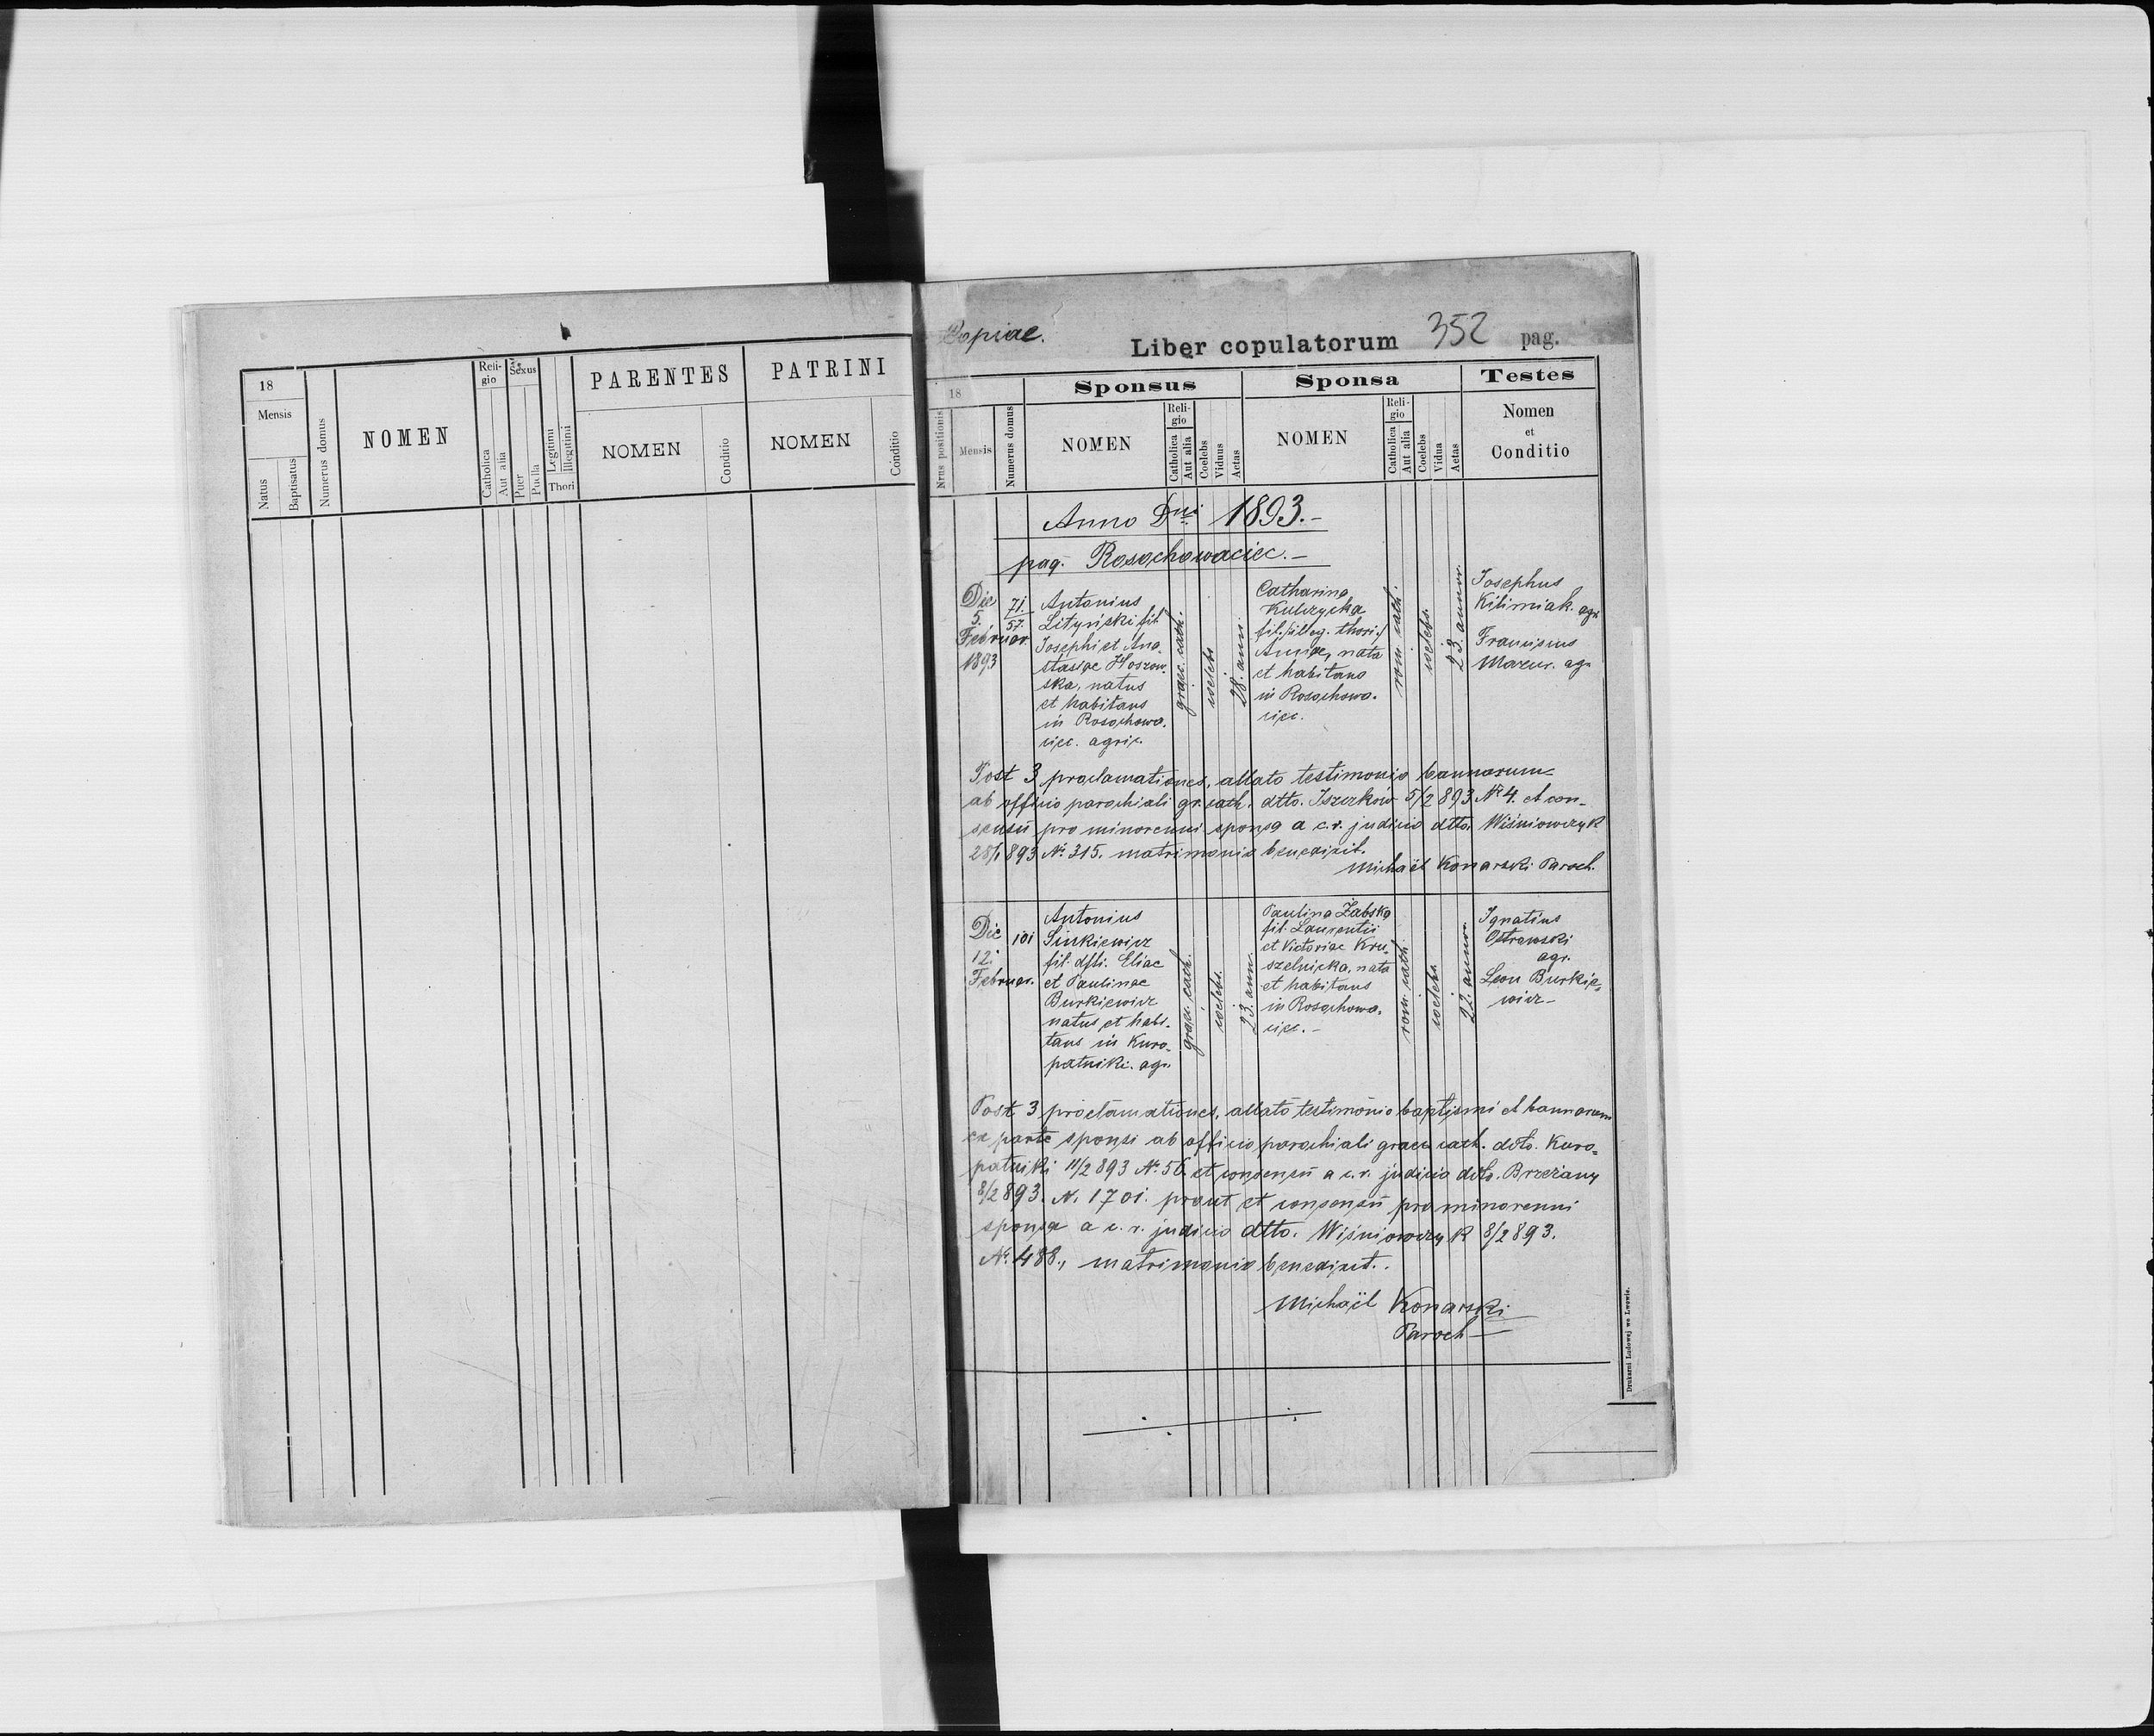 18
Mensis
Natus
Baptisatus
Numerus domus
NOMEN
Religio
Catholica
Aut alia
Sexus
Puer
Puella
Legitimi
Illegitimi
Thori
PARENTES
NOMEN
Conditio
PATRINI
NOMEN
Conditio
Copiae.
Liber copulatorum 352 pag.
18
Nrus positionis
Mensis
Numerus domus
Sponsus
NOMEN
Religio
Catholica
Aut alia
Coelebs
Viduus
Aetas
Sponsa
NOMEN
Religio
Catholica
Aut alia
Coelebs
Vidua
Aetas
Testes
Nomen
et
Conditio
Anno Dni 1893.-
pag. Rosochowaciec.-
Die
5.
Februar.
1893
71.
57.
Antonius
Lityński fil
Josephi et Ana-
stasiae Hoszow-
ska, natus
et habitans
in Rosochowa-
ciec. agric.
graec. cath.
coelebs
28. ann.
Catharina
Kulczycka
fil. /illeg. thori./
Annae, nata
et habitans
in Rosochowa-
ciec.
rom. cath.
coelebs.
23. annor.
Josephus
Kilimiak. agr
Franciscus
Mazur. agr
Post 3 proclamationes, allato testimonio bannorum
ab officio parochiali gr. cath. dtto. Iszczków 5/2 893 Nr 4. et con-
sensu pro minorenni sponsa a c.r. judicio dtto. Wiśniowczyk
28/1 893 No. 315. matrimonio benedixit.
Michaël Konarski Paroch.
Die
12.
Februar.
101
Antonius
Sinkiewicz
fil. dfti. Eliae
et Paulinae
Burkiewicz
natus et habi-
tans in Kuro-
patniki. agr.
graec. cath.
coelebs.
23. ann.
Paulina Żabska
fil. Laurentii
et Victoriae Kru-
szelnicka, nata
et habitans
in Rosochowa-
ciec.-
rom. cath.
coelebs.
22. annor.
Ignatius
Ostrowski
agr.
Leon Burkie-
wicz-
Post 3 proclamationes, allato testimonio baptismi et bannorum
ex parte sponsi ab officio parochiali graec. cath. dtto. Kuro-
patniki 11/2 893 No. 56. et consensu a c.r. judicio dtto. Brzeżany
8/2 893. N. 1701. prout et consensu pro minorenni
sponsa a c. r. judicio dtto. Wiśniowczyk 8/2 893.
No. 488., matrimonio benedixit.
Michaël Konarski
Paroch
Drukarni Ludowej we Lwowie.